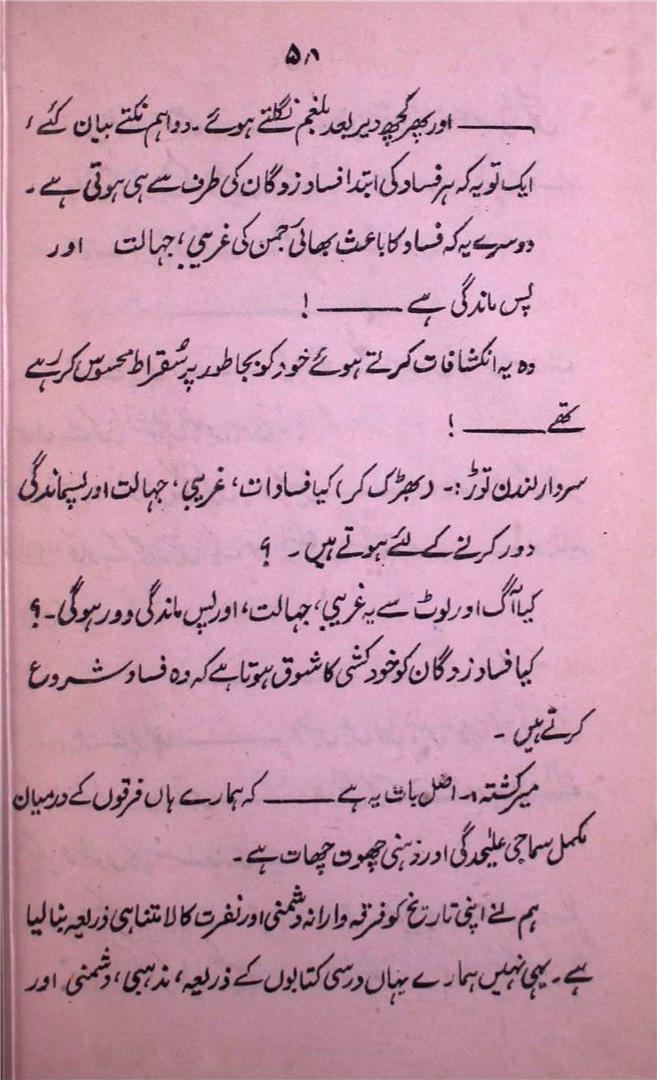 ۵۸
ــــــ اور پھر کچھ دیر بعد بلغم نگلتے ہوئے۔ دو اہم نکتے بیان کئے،
ایک تو یہ کہ ہر فساد کی ابتدا فساد زدگان کی طرف سے ہی ہوتی ہے۔
دوسرے یہ کہ فساد کا باعث بھائی جمن کی غریبی، جہالت اور
پس ماندگی ہے ــــــ !
وہ یہ انکشافات کرتے ہوئے خود کو بجا طور پر سُقراط محسوس کر رہے
تھے ــــــ !
سردار لندن توڑ :۔ (بھڑک کر) کیا فسادات، غریبی، جہالت اور پسماندگی
دور کرنے کے لئے ہوتے ہیں۔ ؟
کیا آگ اور لوٹ سے یہ غریبی، جہالت، اور پس ماندگی دور ہوگی۔ ؟
کیا فساد زدگان کو خود کشی کا شوق ہوتا ہے کہ وہ فساد شروع
کرتے ہیں۔
میر کشتہ :۔ اصل بات یہ ہے ــــــ کہ ہمارے ہاں فرقوں کے درمیان
مکمل سماجی علیٰحدگی اور ذہنی چھوت چھات ہے۔
ہم نے اپنی تاریخ کو فرقہ وارانہ دشمنی اور نفرت کا لا متناہی ذریعہ بنا لیا
ہے۔ یہی نہیں ہمارے یہاں درسی کتابوں کے ذریعہ، مذہبی، دشمنی اور